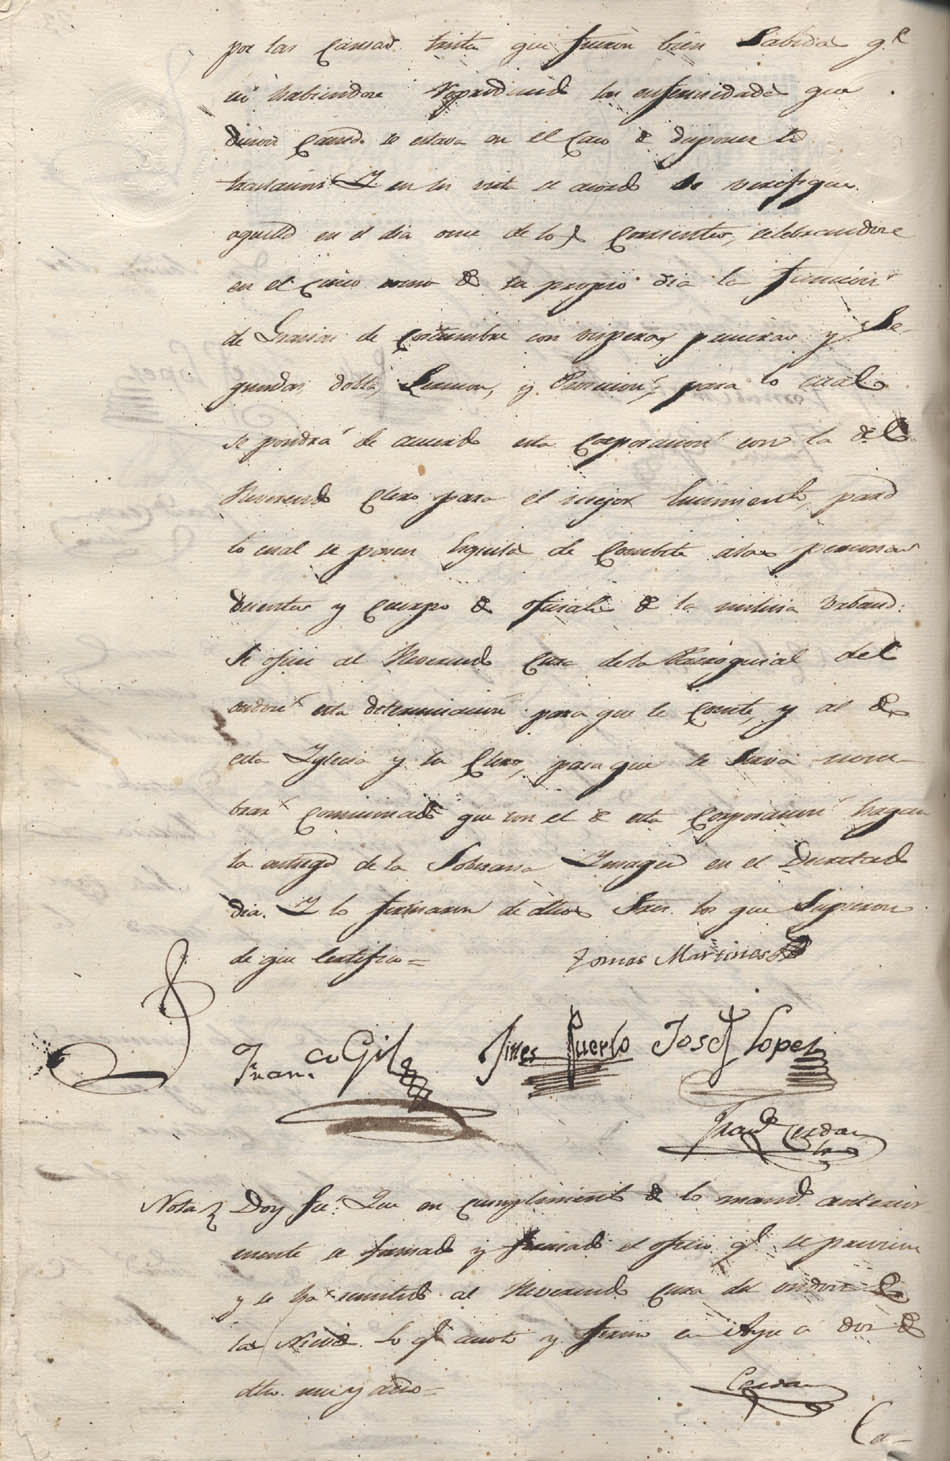 por las causas tristes que fueron bien sabidas q.e
no habiendose reproducido las enfermedades que
dieron causa se estava en el caso de disponer la
traslacion: Y en su vist. se acordó se verifique
aquella en el dia once de los corrientes, celebrandose
en el mismo de su propio dia la funcion
de Gracias de costumbre con visperas primeras y Se-
gundas, doble, Sermon, y Procesion, para lo cual
se pondrá de acuerdo esta Corporacion con la del
Reverendo Clero para el mejor lucimiento, para
lo cual se ponen Esquelas de Combite a las personas
decentes y cuerpo de oficiales de la milicia Urbana:
Se oficie al Reverendo Cura de la Parroquial del
esta determinacion para que le conste, y al de
esta Yglesia y su Clero, para que se sirva nom-
brar comisionado que con el de esta Corporacion hagan
la entrega de la Soberana Ymagen en el decretado
dia. Y lo firmaron de dhos Sres. los que Supieron
de que Certifico=
Tomas Martines
Fran.co Gil Jines Puerto José Lopez
Fran.co Cerdan
Nota Doy fee: Que en cumplimiento de lo mand.o anterior-
mente se formado y firmado el oficio q.e se previene
y se ha remitido al Reverendo Cura de
las Nieves. Lo q.e anoto y firmo en a dos de
dho. mes y año=
Cerdan
Ca-